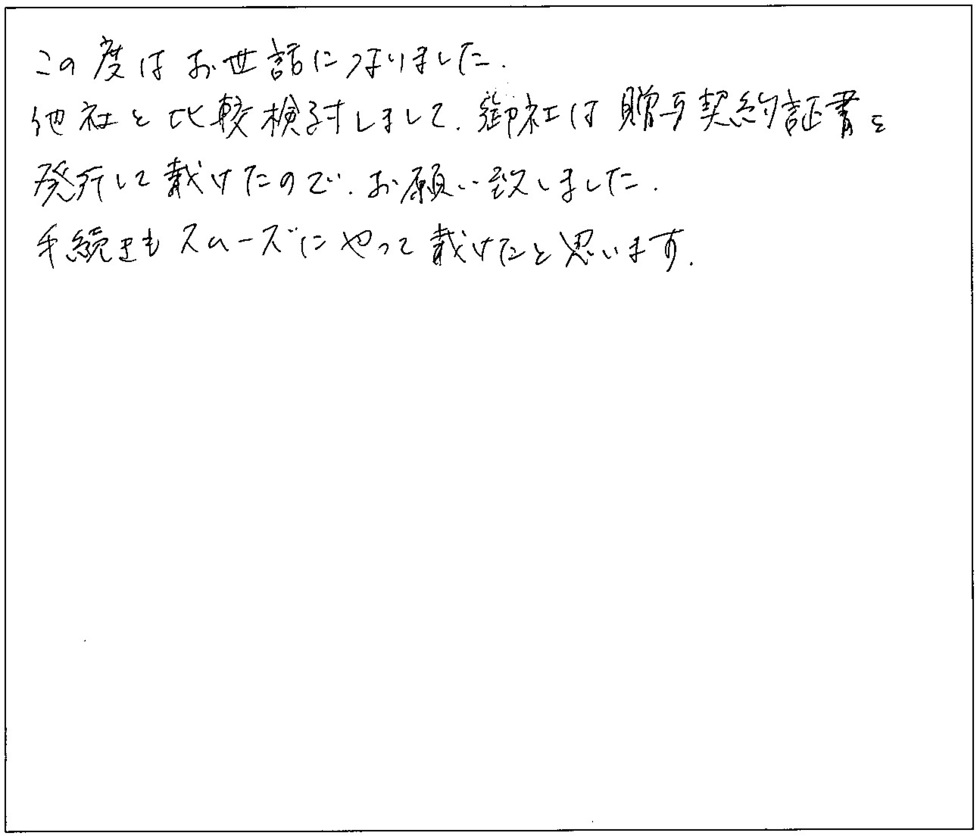 この度はお世話になりました.
他社と比較検討しまして.御社は贈与契約証書を
発行して載けたので.お願い致しました.
手続きもスムーズにやって載けたと思います.